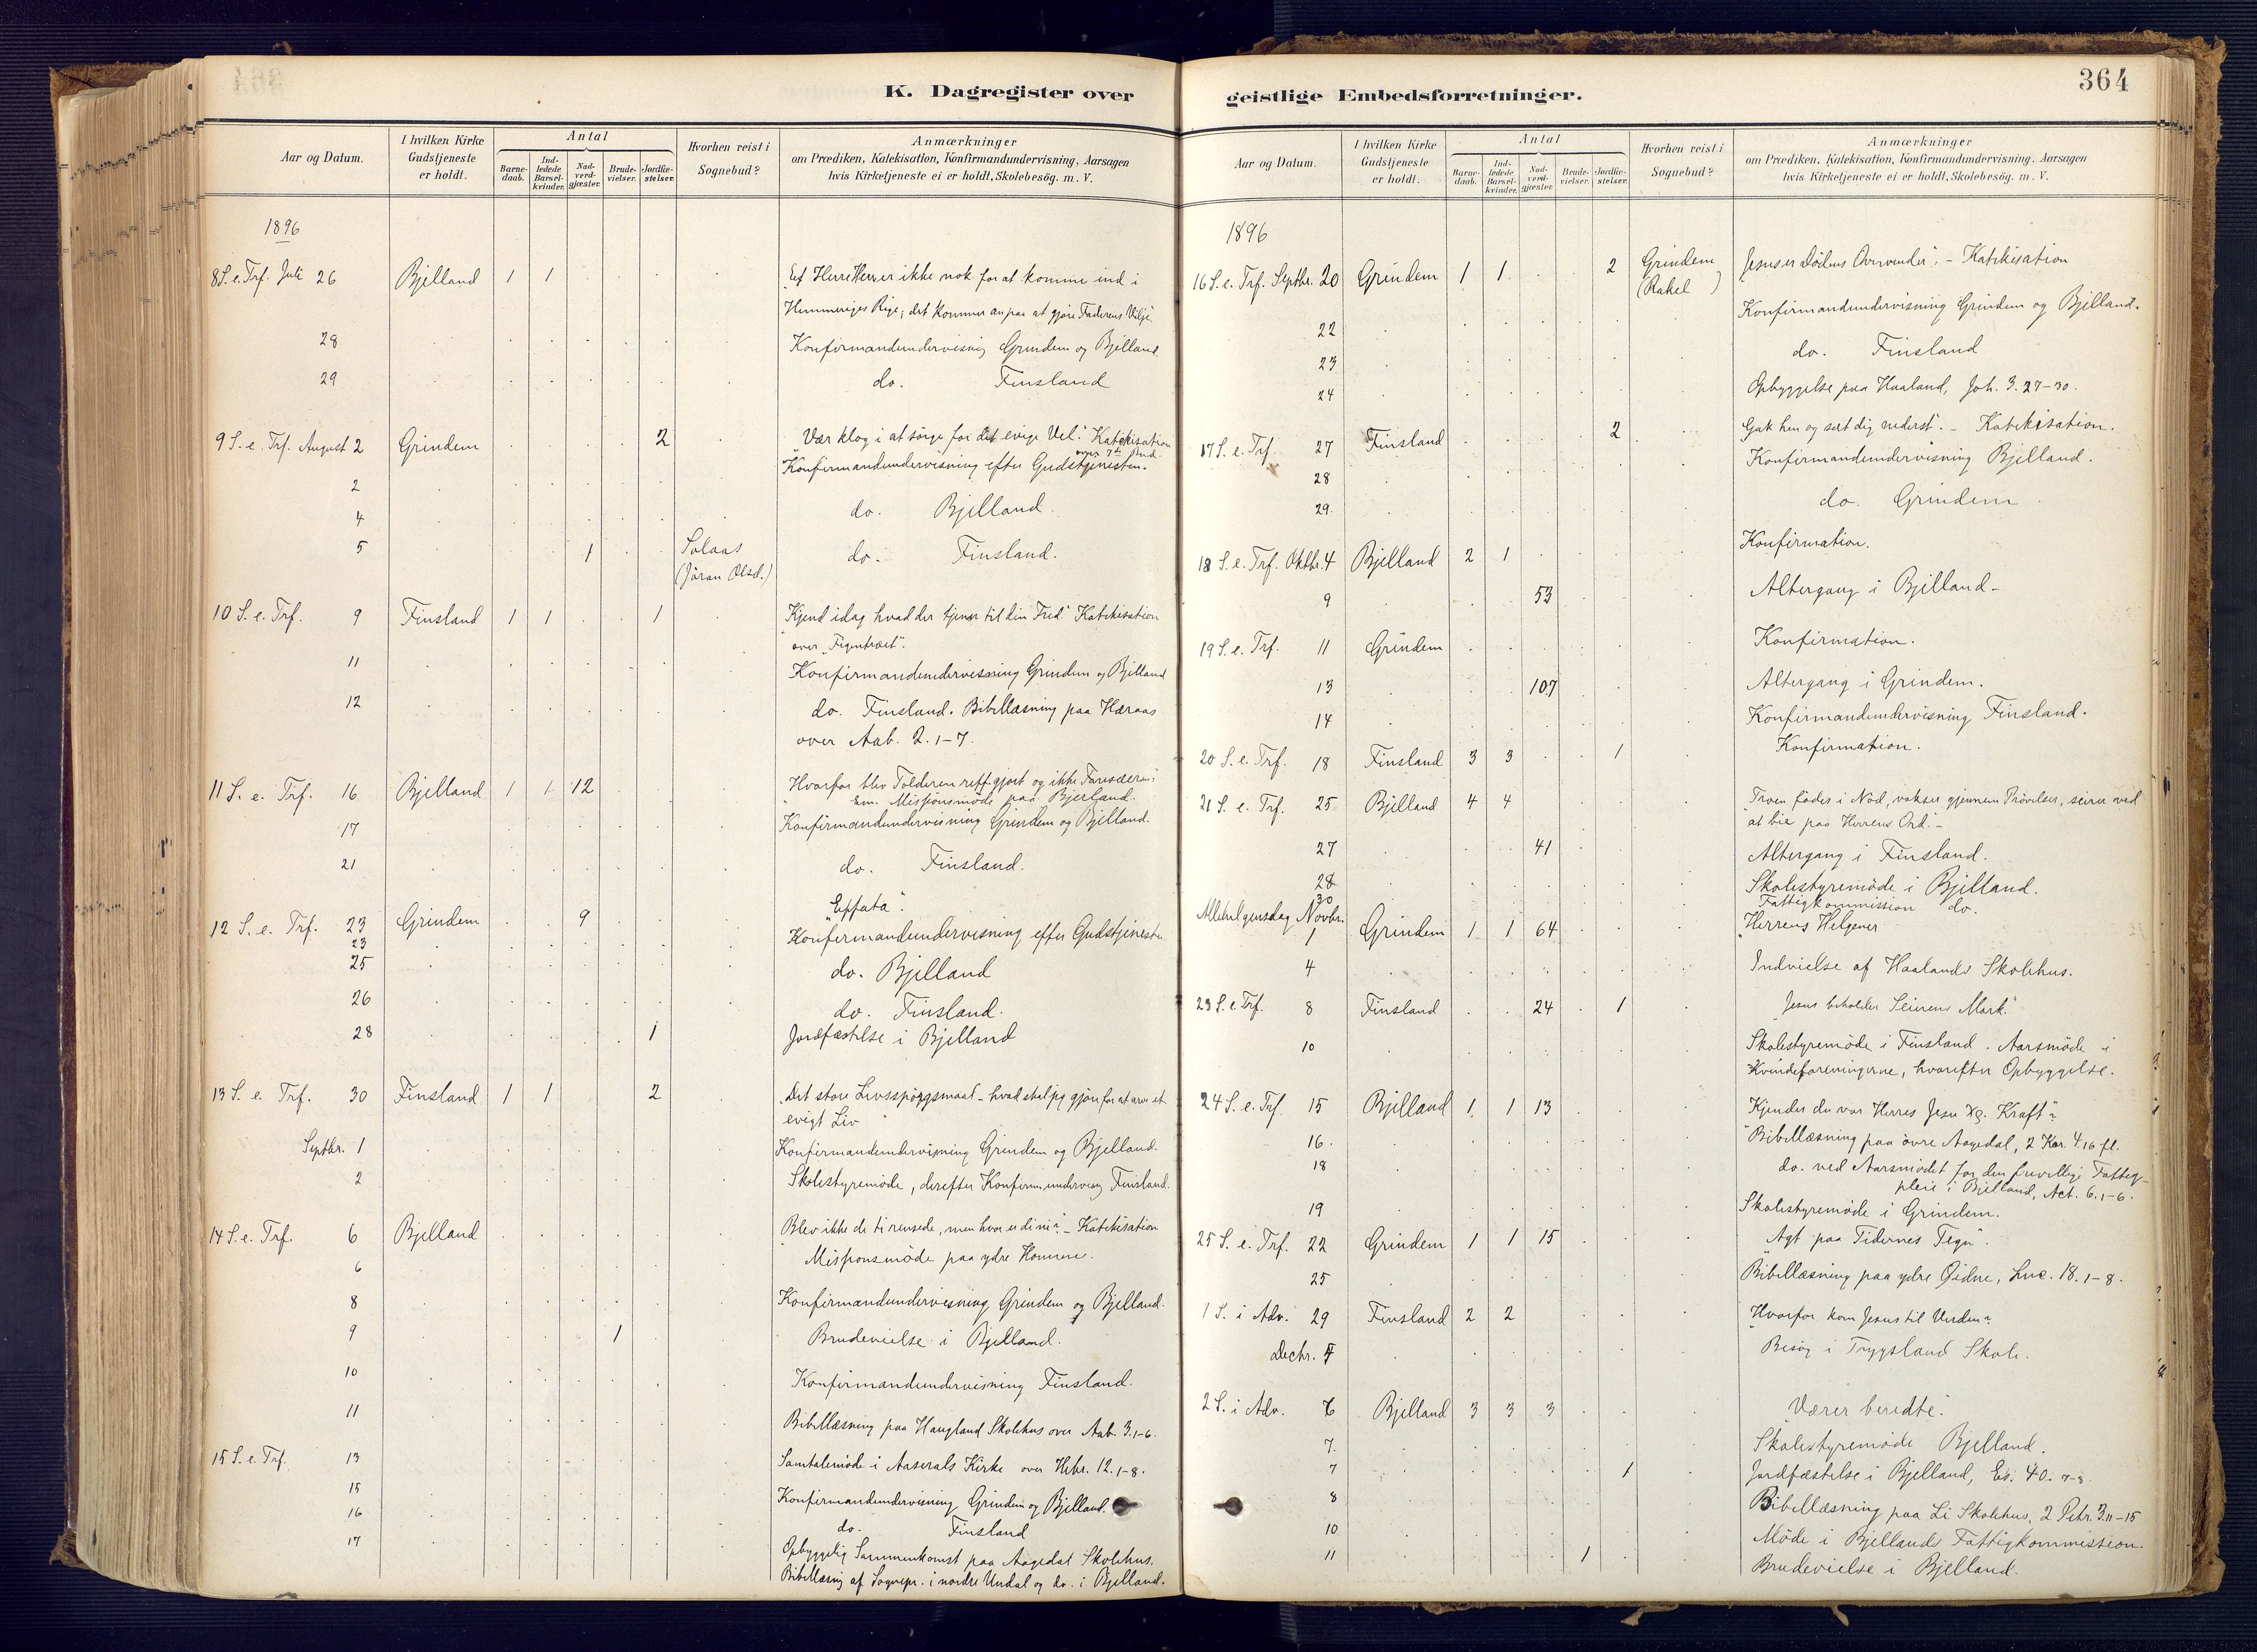 K. Dagregister over
Aar og Datum.
I hvilken Kirke Gudstjeneste er holdt.
Antal
Barnedaab.
Indledede Barselkvinder.
Nadverdgjæster.
Brudevielser.
Jordfæstelser.
Hvorhen reist i Sognebud?
Anmærkninger
om Prædiken, Katekisation, Konfirmandundervisning, Aarsagen
hvis Kirketjeneste ei er holdt, Skolebesög. m. V.
1896
8 S. e. Trf. Juli 26 Bjelland 1 1 Herre Herre er ikke nok for at komme ind i
Himmeriges Rige; det kommer an paa at gjøre Faderens Vilje
28 Konfirmandundervisning Grindem og Bjelland
29 do. Finsland
9 S. e. Trf. August 2 Grindem 2 "Vær klog i at sørge for dit evige Vel." Katekisation
over 7de Bud
2 Konfirmandundervisning efter Gudstjenesten.
4 do. Bjelland.
5 1 Solaas do. Finsland.
(Jöran Olsd.)
10 S. e. Trf. 9 Finsland 1 1 1 "Kjend idag hvad der tjener til din Fred." Katekisation
over "Figentræet".
11 Konfirmandundervisning Grindem og Bjelland
12 do. Finsland. Bibellæsning paa Høraas
over Aab. 2. 1-7.
11 S. e. Trf. 16 Bjelland 1 1 12 "Hvorfor blev Tolderen retfgjort og ikke Farisæeren?
Em. Missionsmøde paa Bjerland.
17 Konfirmandundervisning Grindem og Bjelland.
21 do. Finsland.
12 S. e. Trf. 23 Grindem 9 "Effata".
23 Konfirmandundervisning efter Gudstjenesten
25 do. Bjelland
26 do. Finsland.
28 1 Jordfæstelse i Bjelland
13 S. e. Trf. 30 Finsland 1 1 2 "Det store Livsspørgsmaal - hvad skal jeg gjøre for at arve et
evigt Liv
Septbr. 1 Konfirmandundervisning Grindem og Bjelland.
2 Skolestyremøde, derefter Konfirm.undervisng Finsland.
14 S. e. Trf. 6 Bjelland "Blev ikke de ti rensede, men hvor er de ni?" - Katekisation
6 Missionsmøde paa ydre Homme.
8 Konfirmandundervisning Grindem og Bjelland.
9 1 Brudevielse i Bjelland.
10 Konfirmandundervisning Finsland.
11 Bibellæsning paa Haugland Skolehus over Aab. 3. 1-6.
15 S. e. Trf. 13 Samtalemøde i Aaserals Kirke over Hebr. 12. 1-8.
15 Konfirmandundervisning Grindem og Bjelland.
16 do. Finsland
17 Opbyggelig Sammenkomst paa Aagedal Skolehus.
Bibellæsng af Sognepr. i nordre Undal og do. i Bjelland.
geistlige Embedsforretninger.
364
Aar og Datum.
I hvilken Kirke Gudstjeneste er holdt.
Antal
Barnedaab.
Indledede Barselkvinder.
Nadverdgjæster.
Brudevielser.
Jordfæstelser.
Hvorhen reist i Sognebud?
Anmærkninger
om Prædiken, Katekisation, Konfirmandundervisning, Aarsagen
hvis Kirketjeneste ei er holdt, Skolebesög. m. V.
1896
16 S. e. Trf. Septbr. 20 Grindem 1 1 2 Grindem "Jesus er Dødens Overvinder". - Katekisation
(Rakel )
22 Konfirmandundervisning Grindem og Bjelland.
23 do. Finsland
24 Opbyggelse paa Haaland, Joh. 3. 27-30.
17 S. e. Trf. 27 Finsland 2 "Gak hen og sæt dig nederst". - Katekisation.
28 Konfirmandundervisning Bjelland.
29. do. Grindem
18 S. e. Trf. Oktbr. 4 Bjelland 2 1 Konfirmation.
9 53 Altergang i Bjelland -
19 S. e. Trf. 11 Grindem Konfirmation.
13 107 Altergang i Grindem.
14 Konfirmandundervisning Finsland.
20 S. e. Trf. 18 Finsland 3 3 1 Konfirmation.
21 S. e. Trf. 25 Bjelland 4 4 "Troen fødes i Nød, vokser gjennem Prøvelser, seirer ved
at bie paa Herrens Ord." -
27 41 Altergang i Finsland.
28 Skolestyremøde i Bjelland.
30 Fattigkommission do.
Allehelgensdag Novbr. 1 Grindem 1 1 64 "Herrens Helgener
4 Indvielse af Haalands Skolehus.
23 S. e. Trf. 8 Finsland 24 1 "Jesus beholder Seierens Mark."
10 Skolestyremøde i Finsland. Aarsmøde i
Kvindeforeningerne, hvorefter Opbyggelse.
24 S. e. Trf. 15 Bjelland 1 1 13 "Kjender du vor Herres Jesu Kr. Kraft"?
16. Bibellæsning paa övre Aagedal, 2 Kor. 4. 16 fl.
18 do. ved Aarsmødet for den frivillige Fattig-
pleie i Bjelland, Act. 6. 1-6.
19 Skolestyremøde i Grindem.
25 S. e. Trf. 22 Grindem 1 1 15 "Agt paa Tidernes Tegn".
25 Bibellæsning paa ydre Øidne, Luc. 18. 1-8.
1 S. i Adv. 29 Finsland 2 2 "Hvorfor kom Jesus til Verden?
Decbr. 4 Besøg i Trygsland Skole.
2 S. i Adv. 6 Bjelland 3 3 3 "Værer beredte".
7. Skolestyremøde Bjelland.
7 1 Jordfæstelse i Bjelland, Es. 40. 7-8.
8 Bibellæsning paa Li Skolehus, 2 Petr. 3. 11-15
10 Møde i Bjellands Fattigkommission.
11 1 Brudevielse i Bjelland.